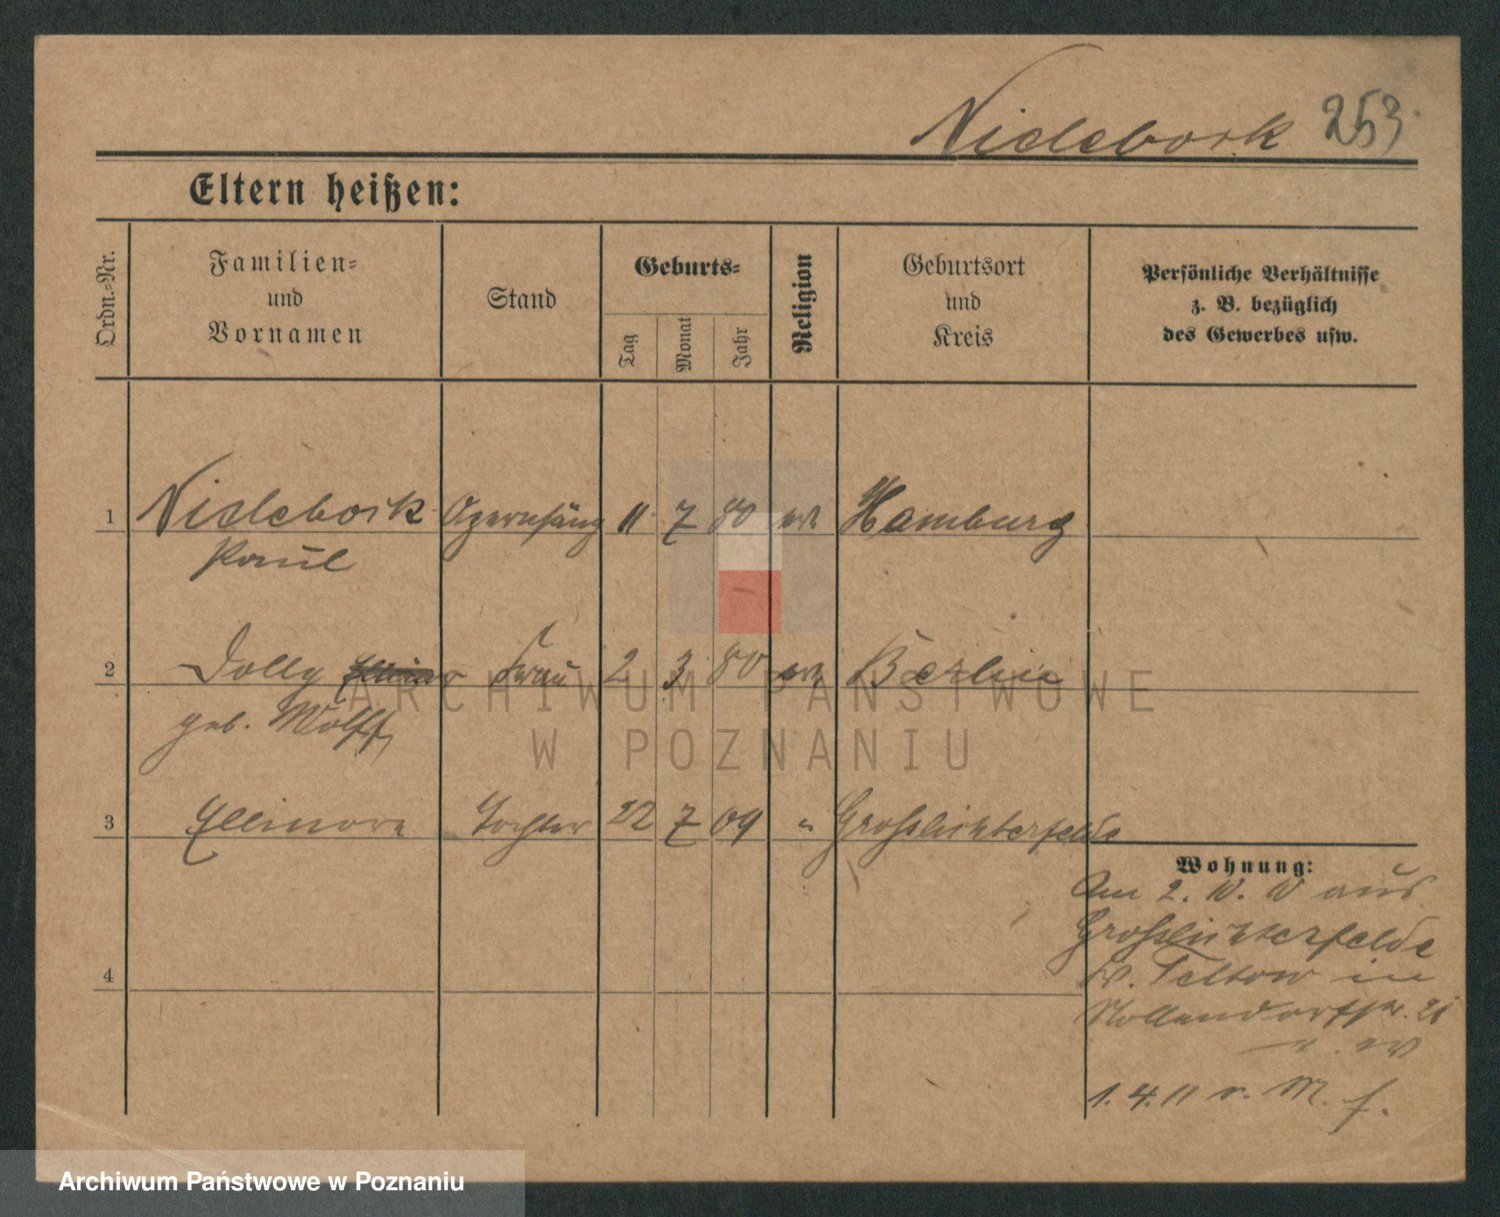 Nidebork 253
Eltern heißen:
Ordn.-Nr.
Familien-
und
Vornamen
Stand
Geburts-
Tag
Monat
Jahr
Religion
Geburtsort
und
Kreis
Persönliche Verhältnisse
z. B. bezüglich
des Gewerbes usw.
1 Paul 11 7 80 Hamburg
2 Dolly Frau 2 3 80 Berlin
geb. Wolff
3 Ellinora Tochter 22 7 09 " Grosslichterfelde
4
Wohnung:
Am 2. 10. 10 aus
Grosslichterfelde
Teltow in
Nollendorfstr. 21
1. 4. 11 v. M. f.
ARCHIWUM PAŃSTWOWE
W POZNANIU
Archiwum Państwowe w Poznaniu